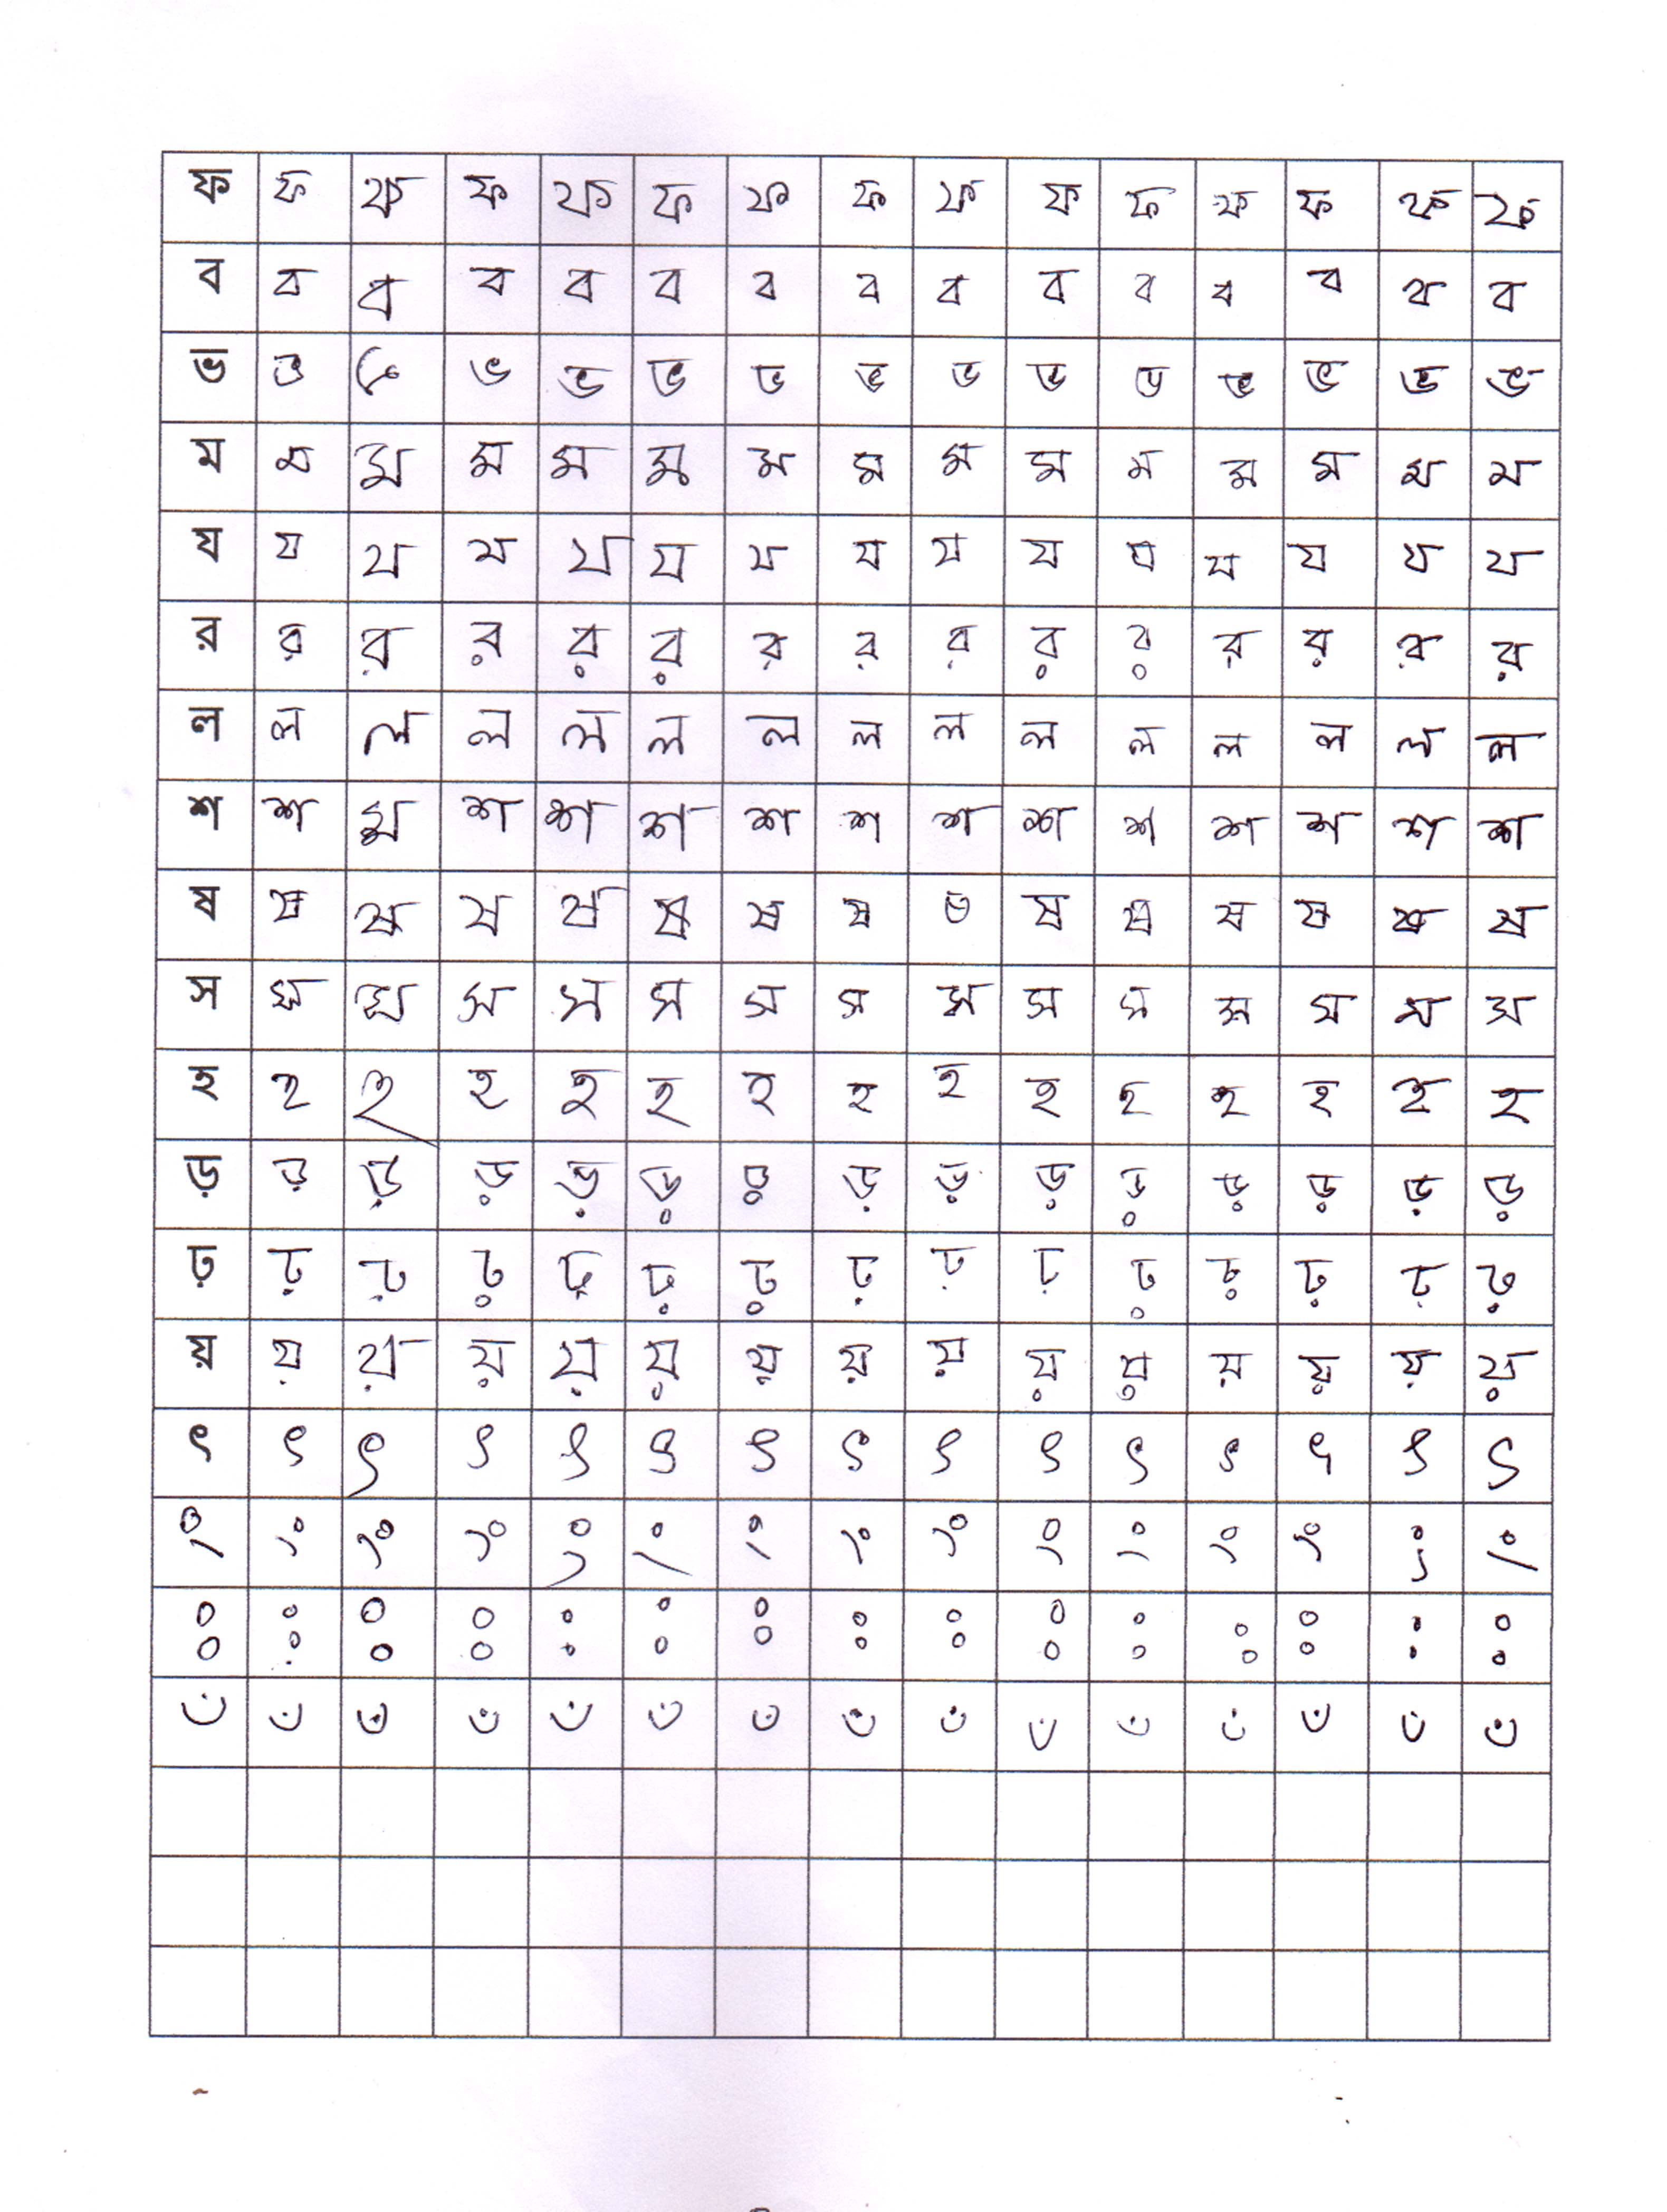 ফ ফ ফ ফ ফ ফ ফ ফ ফ ফ ফ ফ ফ ফ ফ
ব ব ব ব ব ব ব ব ব ব ব ব ব ব ব
ভ ভ ভ ভ ভ ভ ভ ভ ভ ভ ভ ভ ভ ভ ভ
ম ম ম ম ম ম ম ম ম ম ম ম ম ম ম
য য য য য য য য য য য য য য য
র র র র র র র র র র র র র র র
ল ল ল ল ল ল ল ল ল ল ল ল ল ল ল
শ শ শ শ শ শ শ শ শ শ শ শ শ শ শ
ষ ষ ষ ষ ষ ষ ষ ষ ষ ষ ষ ষ ষ ষ ষ
স স স স স স স স স স স স স স স
হ হ হ হ হ হ হ হ হ হ হ হ হ হ হ
ড় ড় ড় ড় ড় ড় ড় ড় ড় ড় ড় ড় ড় ড় ড়
ঢ় ঢ় ঢ় ঢ় ঢ় ঢ় ঢ় ঢ় ঢ় ঢ় ঢ় ঢ় ঢ় ঢ় ঢ়
য় য় য় য় য় য় য় য় য় য় য় য় য় য় য়
ৎ ৎ ৎ ৎ ৎ ৎ ৎ ৎ ৎ ৎ ৎ ৎ ৎ ৎ ৎ
ং ং ং ং ং ং ং ং ং ং ং ং ং ং ং
ঃ ঃ ঃ ঃ ঃ ঃ ঃ ঃ ঃ ঃ ঃ ঃ ঃ ঃ ঃ
ঁ ঁ ঁ ঁ ঁ ঁ ঁ ঁ ঁ ঁ ঁ ঁ ঁ ঁ ঁ